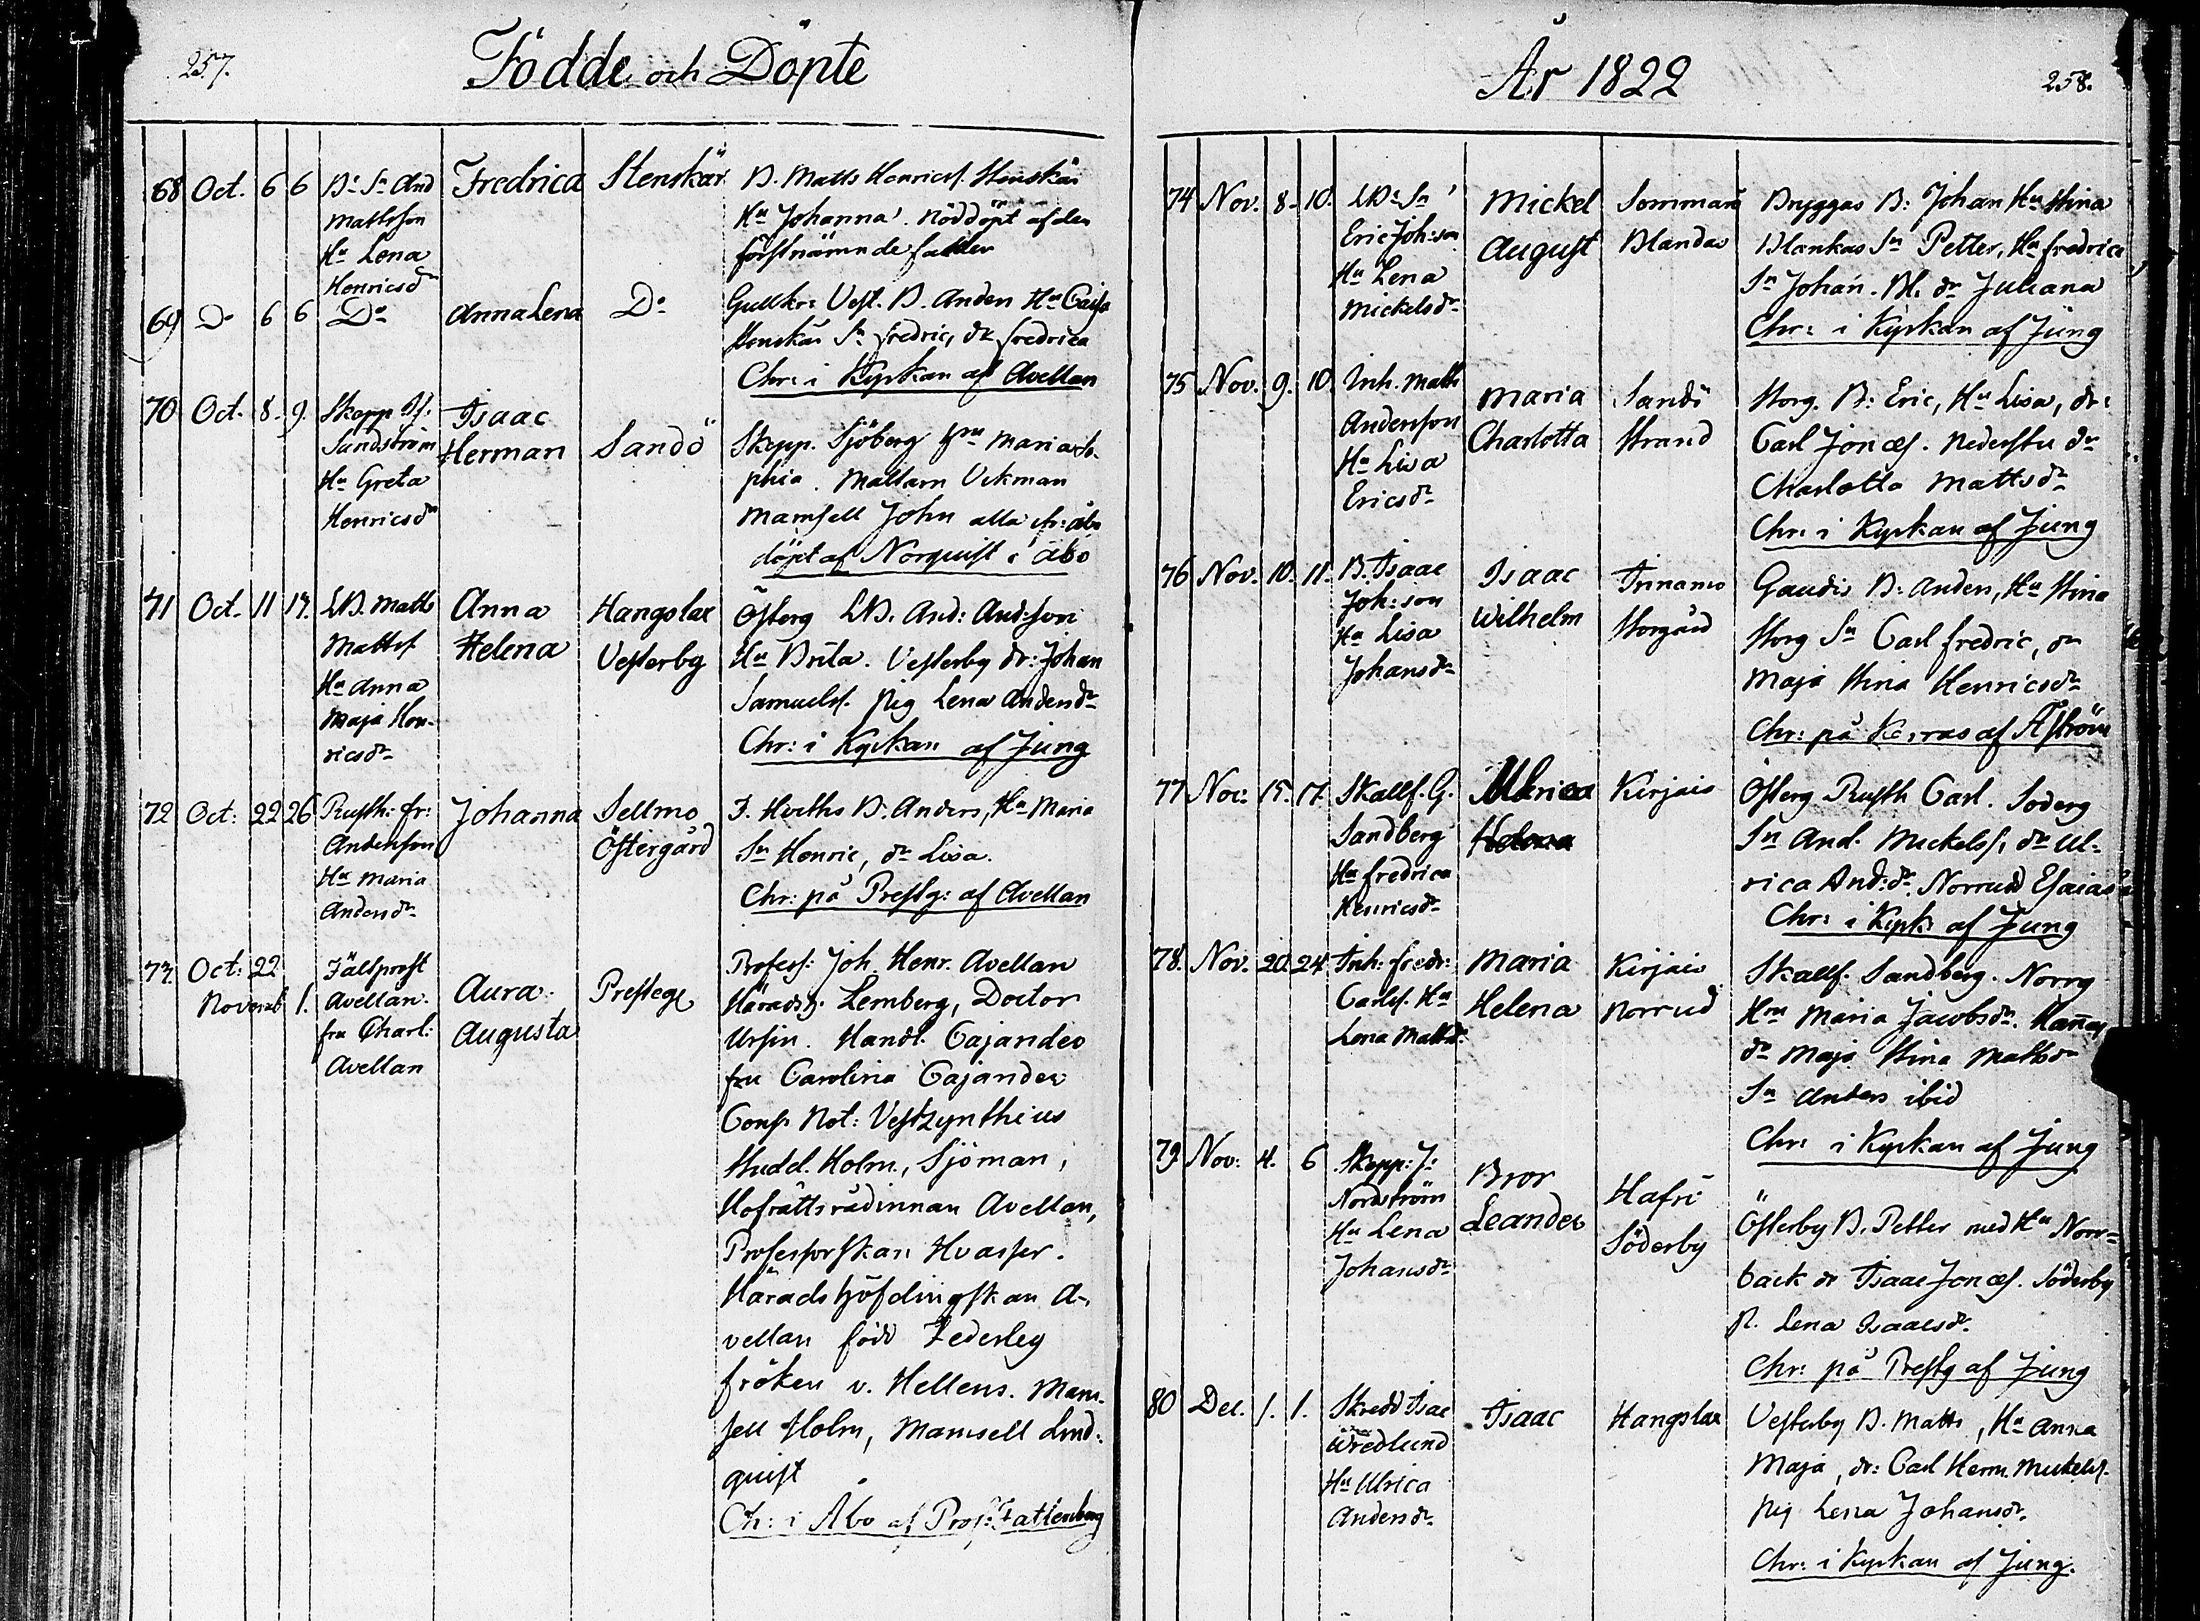 257.
Födde och Döpte
68 Oct. 6 6 B: Sn And Fredrica Stenskär B. Matts Henricss. Stenskär
Mattsson Hu Johanna. nöddöpt af den
Hu Lena förstnämnde fadder
Henricsdr
69 Do 6 6 Do Anna Lena Do Gullkr: Vest. B. Anders Hu Caisa
Stenskär Sn Fredric, dr Fredrica
Chr: i Kyrkan af Avellan
70 Oct. 8. 9. Skepp If: Isaac
Sundström Herman Sandö Skepp. Sjöberg fru Maria So-
Hu Greta phia. Mattsm Uckman
Henricsdr Mamsell John alla ifr: åbo
döpt af Norquist i åbo
71 Oct. 11 17. LB. Matts Anna Hangslax Österg LB. And: And:son
Mattss. Helena Vesterby Hu Brita. Vesterby dr: Johan
Hu Anna Samuelss. pig Lena Andersdr
Maja Hen- Chr: i Kyrkan af Jung
ricsdr
72 Oct: 22 26 Rusth: fr: Johanna Sellmo I. Herths B. Anders, Hu Maria
Andersson Östergård Sn Henric, dr Lisa.
Hu Maria Chr: på Prestg: af Avellan
Andersdr
73. Oct: 22 Fältprost Aura Presteg Profess: Joh. Henr. Avellan
Novemb 1. Avellan. Augusta Häradsh. Lemberg, Doctor
fru Charl: Ursin. Handl. Cajander
Avellan fru Carolina Cajander
Cons. Not: Vestzynthius
Studd. Holm, Sjöman,
Hofrättsrådinnan Avellan,
Professorskan Hvasser.
Häradshöfdingskan A-
vellan född Federley
fröken v. Hellens. Mam-
sell Holm, Mamsell Lind-
quist
Ch: i Åbo af Prof: Fattenborg
År 1822
258.
74 Nov. 8. 10. LB: Sn Mickel Sommarö Bryggas B: Johan Hu Stina
Eric Joh:son August Blandas Blankas Sn Petter, Hu Fredrica
Hu Lena Sn Johan. Bl. dr Juliana
Mickelsdr Chr: i Kyrkan af Jung
75 Nov. 9. 10. Inh. Matts Maria Sandö Storg. B: Eric, Hu Lisa, dr:
Andersson Charlotta Strand Carl Joness. Nederstu dr
Hu Lisa Charlotta Mattsdr
Ericsdr Chr: i Kyrkan af Jung
76 Nov. 10. 11. B. Isaac Isaac Trinamo Gaudis B: Anders, Hu Stina
Joh:son Wilhelm Storgård Storg Sn Carl Fredric, dr
Hu Lisa Maja Stina Henricsdr
Johansdr Chr: på Kerras af Åström
77 Nov: 15. 17. Skallf. G. Ulrica Kirjais Österg Rusth Carl. Söderg
Sandberg Helena Sn And. Mickelss, dr Ul-
Hu Fredrica rica And:dr. Norrudd Esaias
Henricsdr Chr: i Kyrk af Jung
78. Nov. 20. 24 Inh: fredr: Maria Kirjais Skallf. Sandberg. Norrg
Carlss. Hu Helena Norrud Hu Maria Jacobsdr. Kannas
Lena Mattsdr dr Maja Stina Mattsdr
Sn Anders ibid
Chr: i Kyrkan af Jung
79 Nov: 4. 6 Skepp: J: Bror Hafrö Österby B. Petter med Hu Norr-
Nordström Leander Söderby back dr Isaac Joness. Söderby
Hu Lena p. Lena Isaacsdr.
Johansdr Chr: på Prestg af Jung
80 Dec. 1. 1. Skredd Isac Isaac Hangslax Vesterby B. Matts, Hu Anna
Wredlund Maja, dr: Carl Herm. Mickelss.
Hu Ulrica pig Lena Johansdr.
Andersdr. Chr: i Kyrkan af Jung.